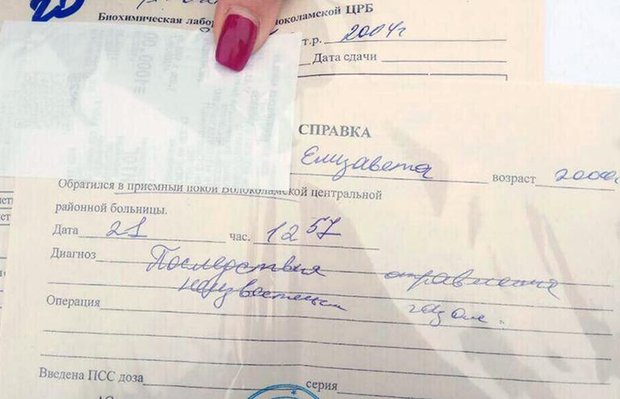 20
Биохимическая Волоколамской ЦРБ
т.р. 2004г
Дата сдачи
СПРАВКА
Елизавета возраст
Обратился в приемный покой Волоколамской центральной
районной больницы.
Дата 21 час. 12 57
Диагноз Последствия отравления
неизвестным газом.
Операция
Введена ПСС доза серия